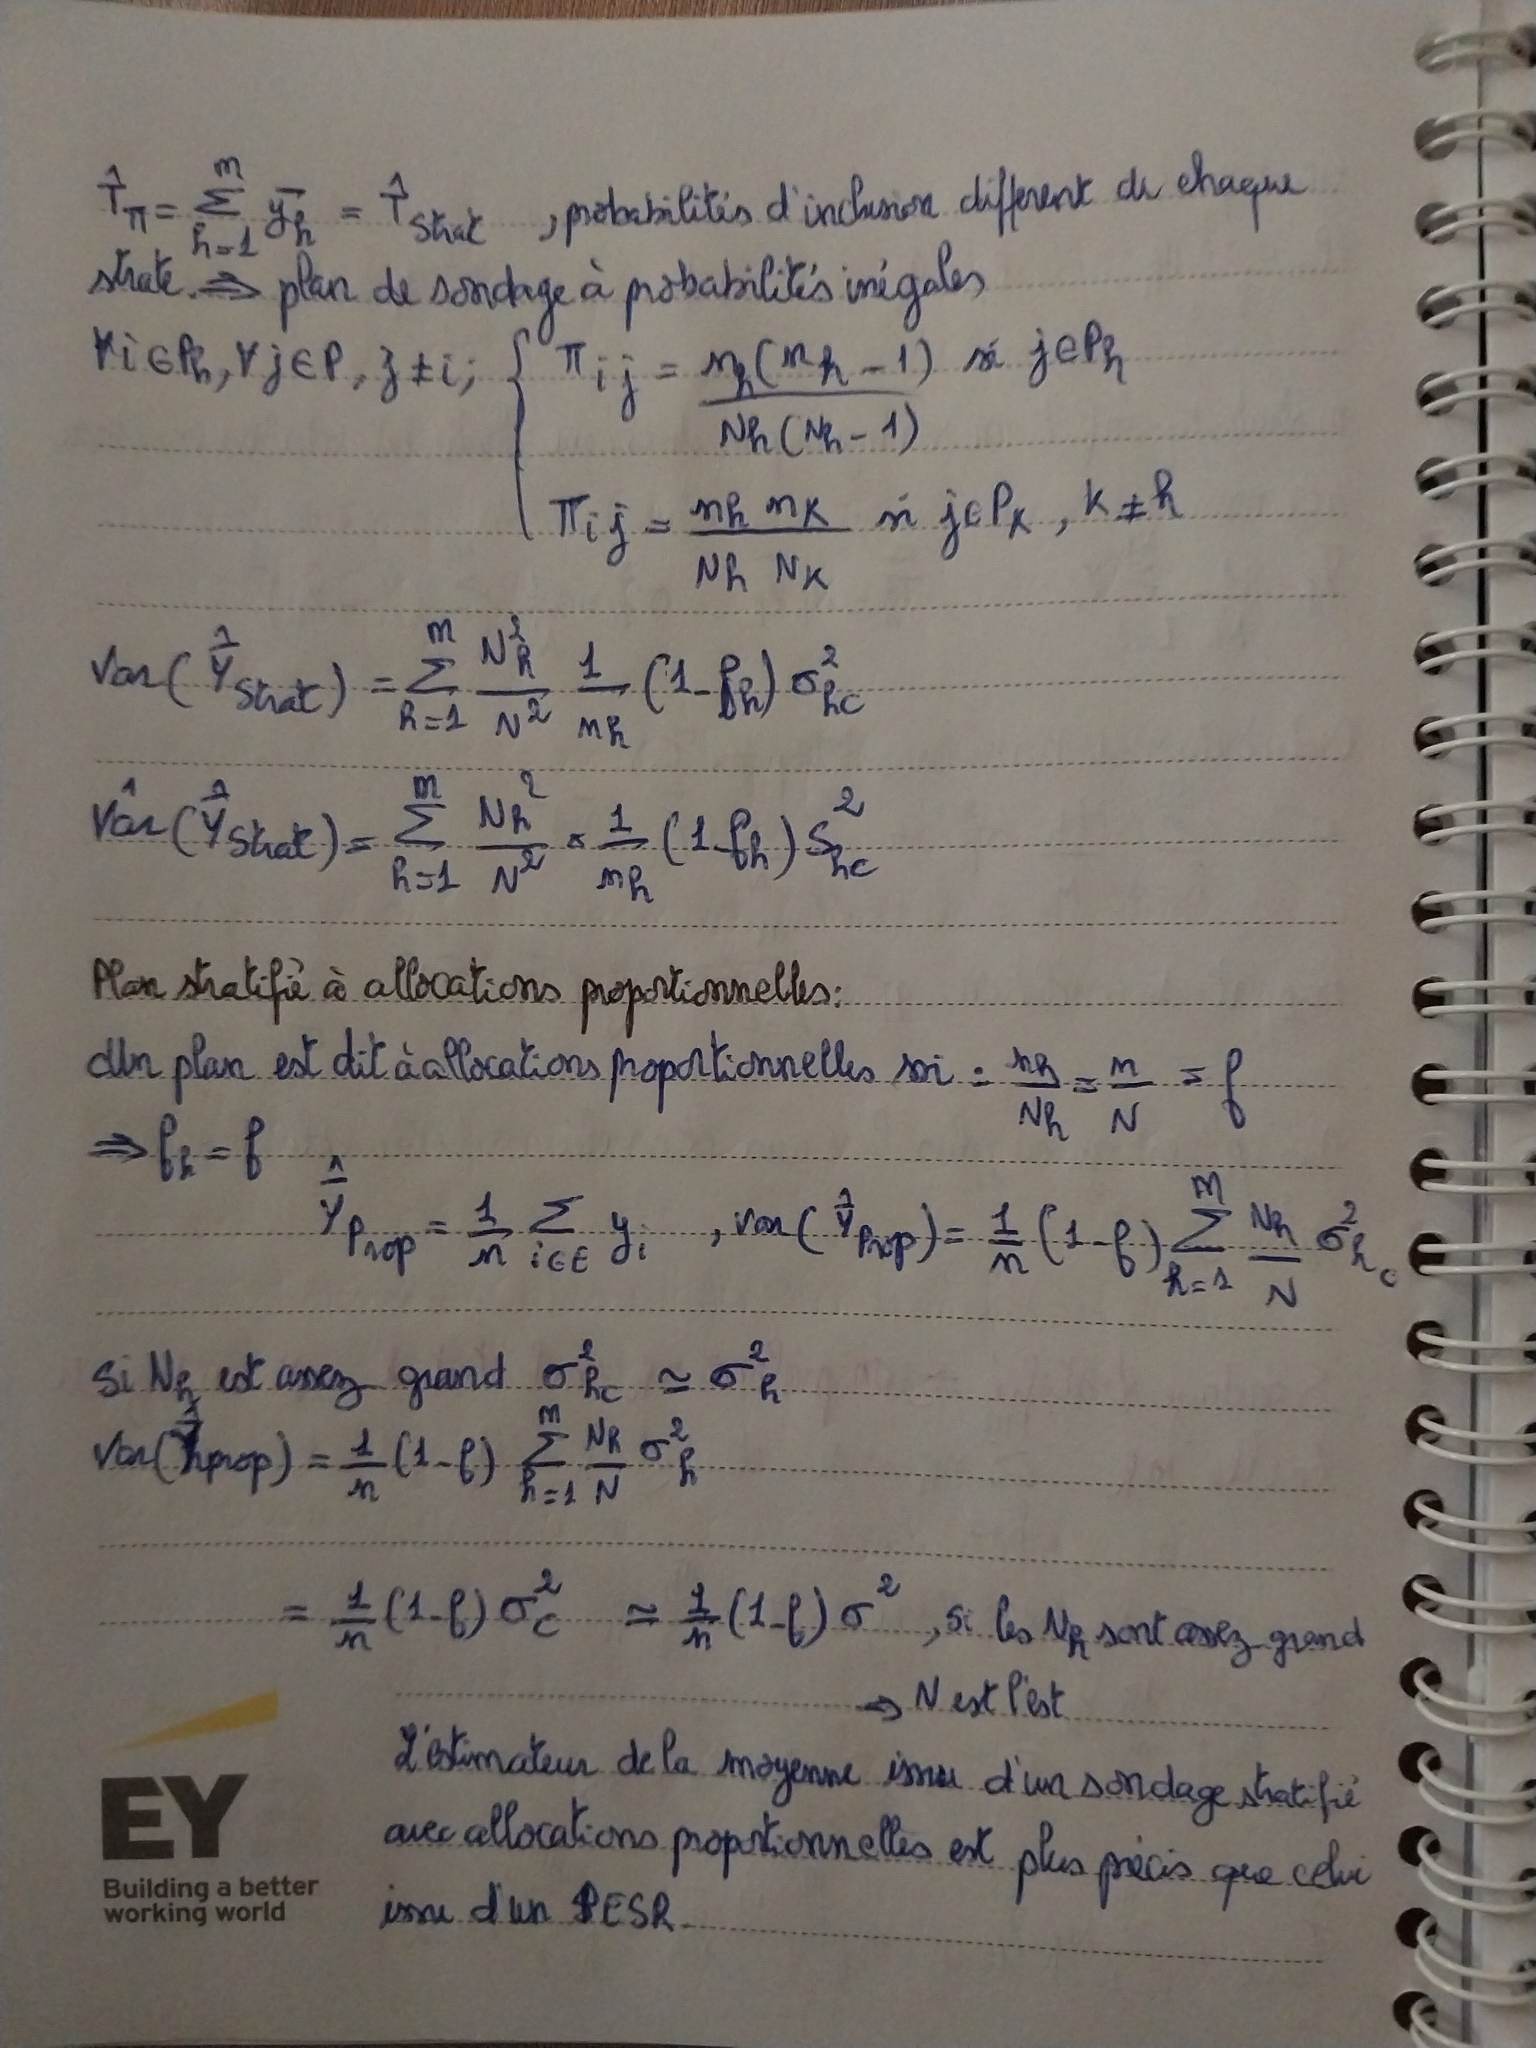 T̂π = Σ_{h=1}^{m} ȳh = T̂strat , probabilités d'inclusion different de chaque
strate. ⇒ plan de sondage à probabilités inégales
∀i∈Ph, ∀j∈P, j≠i; { πij = nh(nh-1) / Nh(Nh-1) si j∈Ph
πij = nh nk / Nh Nk si j∈Pk, k≠h
Var(Ȳ̂strat) = Σ_{h=1}^{m} Nh²/N² 1/nh (1-fh) σ²hc
Vâr(Ȳ̂strat) = Σ_{h=1}^{m} Nh²/N² × 1/nh (1-fh) S²hc
Plan stratifié à allocations proportionnelles:
Un plan est dit à allocations proportionnelles ssi = nh/Nh = n/N = f
⇒ fh = f
Ȳ̂Prop = 1/n Σ_{i∈E} yi , var(Ȳ̂Prop) = 1/n (1-f) Σ_{h=1}^{m} Nh/N σ²hc
Si Nh est assez grand σ²hc ≃ σ²h
Var(Ȳ̂prop) = 1/n (1-f) Σ_{h=1}^{m} Nh/N σ²h
= 1/n (1-f) σ²c ≃ 1/n (1-f) σ² , si les Nh sont assez grand
→ N est l'est
L'estimateur de la moyenne issu d'un sondage stratifié
avec allocations proportionnelles est plus précis que celui
issu d'un PESR.
EY
Building a better
working world